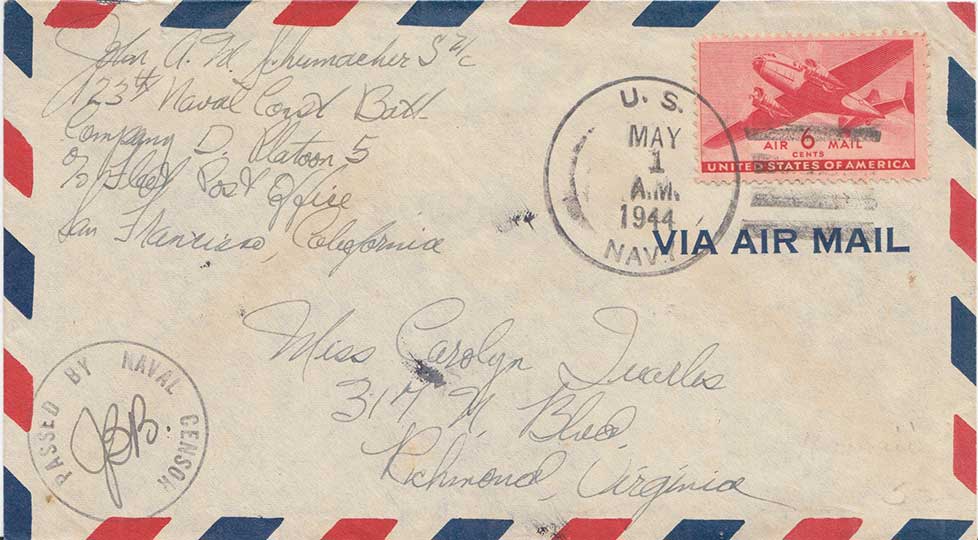 John A. M. Schumacher S 2/c
123th Naval Const Batt
Company D. Platoon 5
c/o Fleet Post Office
San Francisco, California
U. S.
MAY
1
A.M.
1944
NAVY
AIR 6 MAIL
CENTS
UNITED STATES OF AMERICA
VIA AIR MAIL
Miss Carolyn Quarles
317 N. Blvd,
Richmond, Virginia
PASSED BY NAVAL CENSOR
JBB.